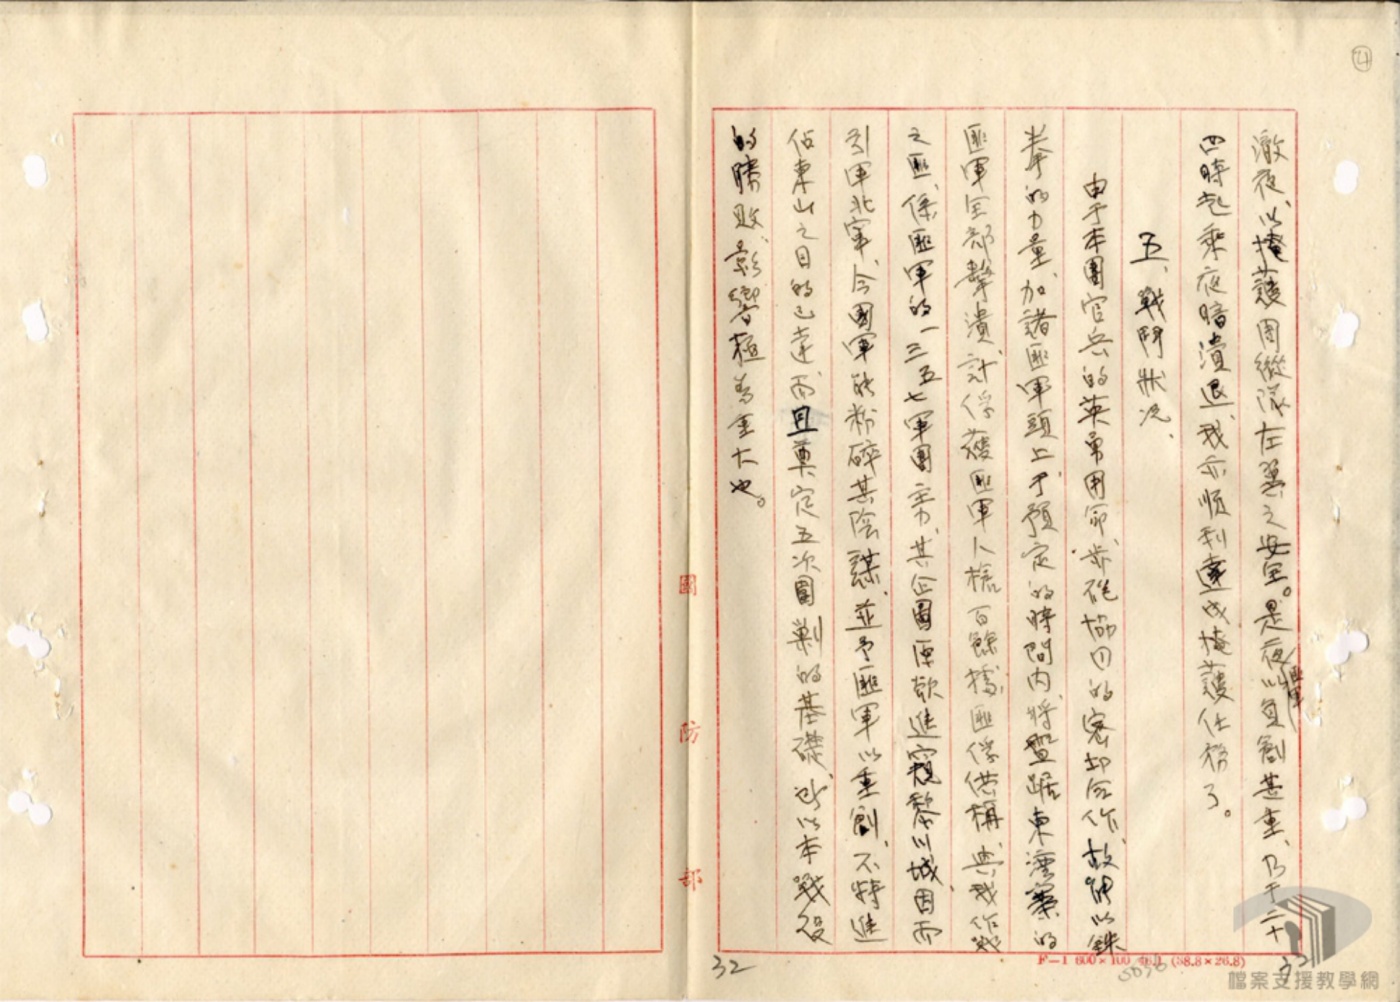 ④
澈夜以掩護團縱隊左翼之安全。是夜匪軍以負創甚重，乃于二十
四時起乘夜暗潰退，我亦順利達成掩護任務了。
五、戰鬥狀況、
由于本團官兵的英勇用命，步砲協同的密切合作，故能以鉄
拳的力量，加諸匪軍頭上，于預定的時間內，將盤踞東漂寨的
匪軍全部擊潰，計俘獲匪軍人槍百餘，據匪俘供稱，與我作戰
之匪，係匪軍的一三五七軍團主力，其企圖原欲進窺黎川城，因而
引軍北窜，今國軍能粉碎其陰謀，並予匪軍以重創，不特進
佔東山之目的已達，而且奠定五次圍剿的基礎，所以本戰役
的勝敗，影響極為重大也。
國防部
F—1 600×100 46.1 (38.8×26.8)
32
32
檔案支援教學網